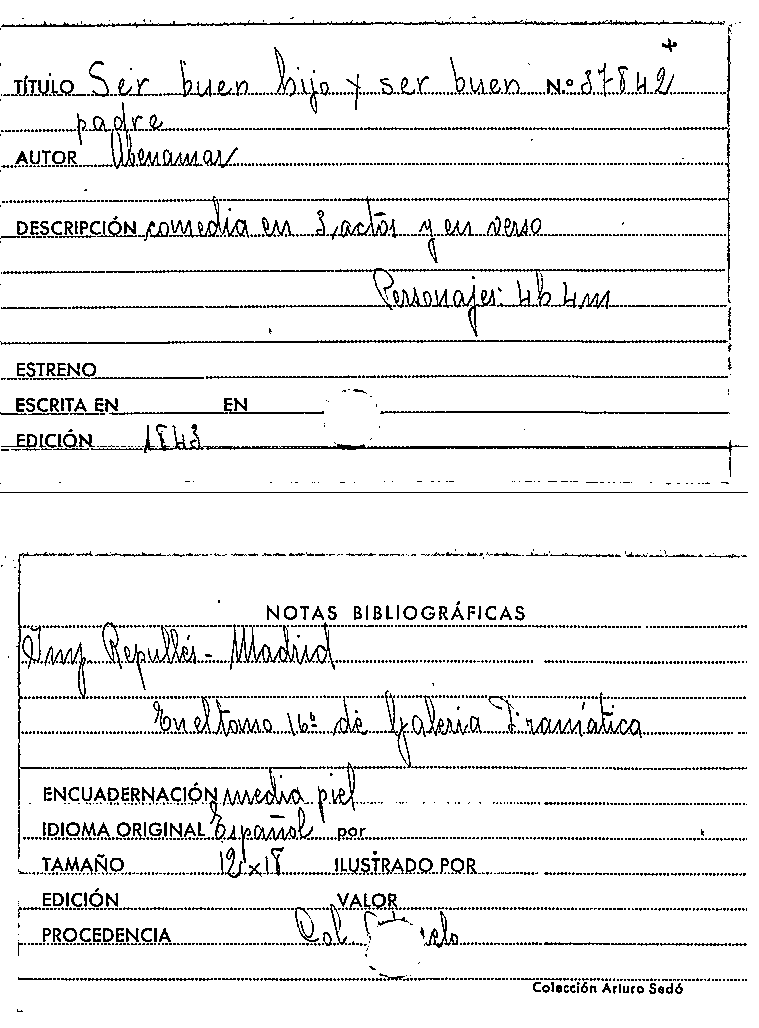 +
TÍTULO Ser buen hijo y ser buen N.º 37842
padre
AUTOR Abenamar
DESCRIPCIÓN comedia en 3 actos y en verso
Personajes: 4h 4m
ESTRENO
ESCRITA EN EN
EDICIÓN 1843
NOTAS BIBLIOGRÁFICAS
Imp. Repullés - Madrid
En el tomo 16º de Galeria Dramática
ENCUADERNACIÓN media piel
IDIOMA ORIGINAL Español por
TAMAÑO 12x18 ILUSTRADO POR
EDICIÓN VALOR
PROCEDENCIA Col.
Colección Arturo Sedó